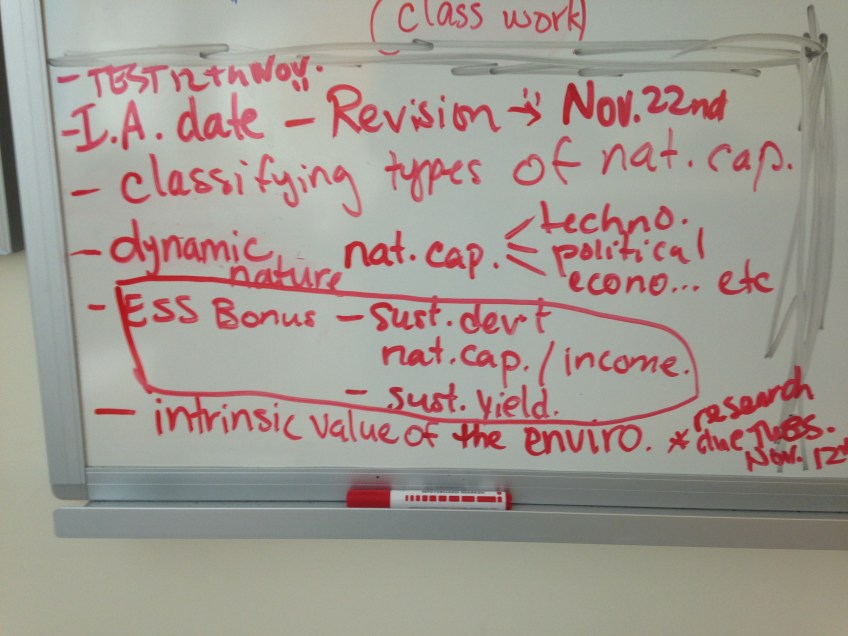 (class work)
- TEST 12th Nov.
- I.A. date - Revision → Nov. 22nd
- classifying types of nat. cap.
- dynamic nature nat. cap. < techno.
political
econo... etc
- ESS Bonus - sust. dev't
nat. cap. / income.
- sust. yield.
- intrinsic value of the enviro. * research
due TUES.
Nov. 12th